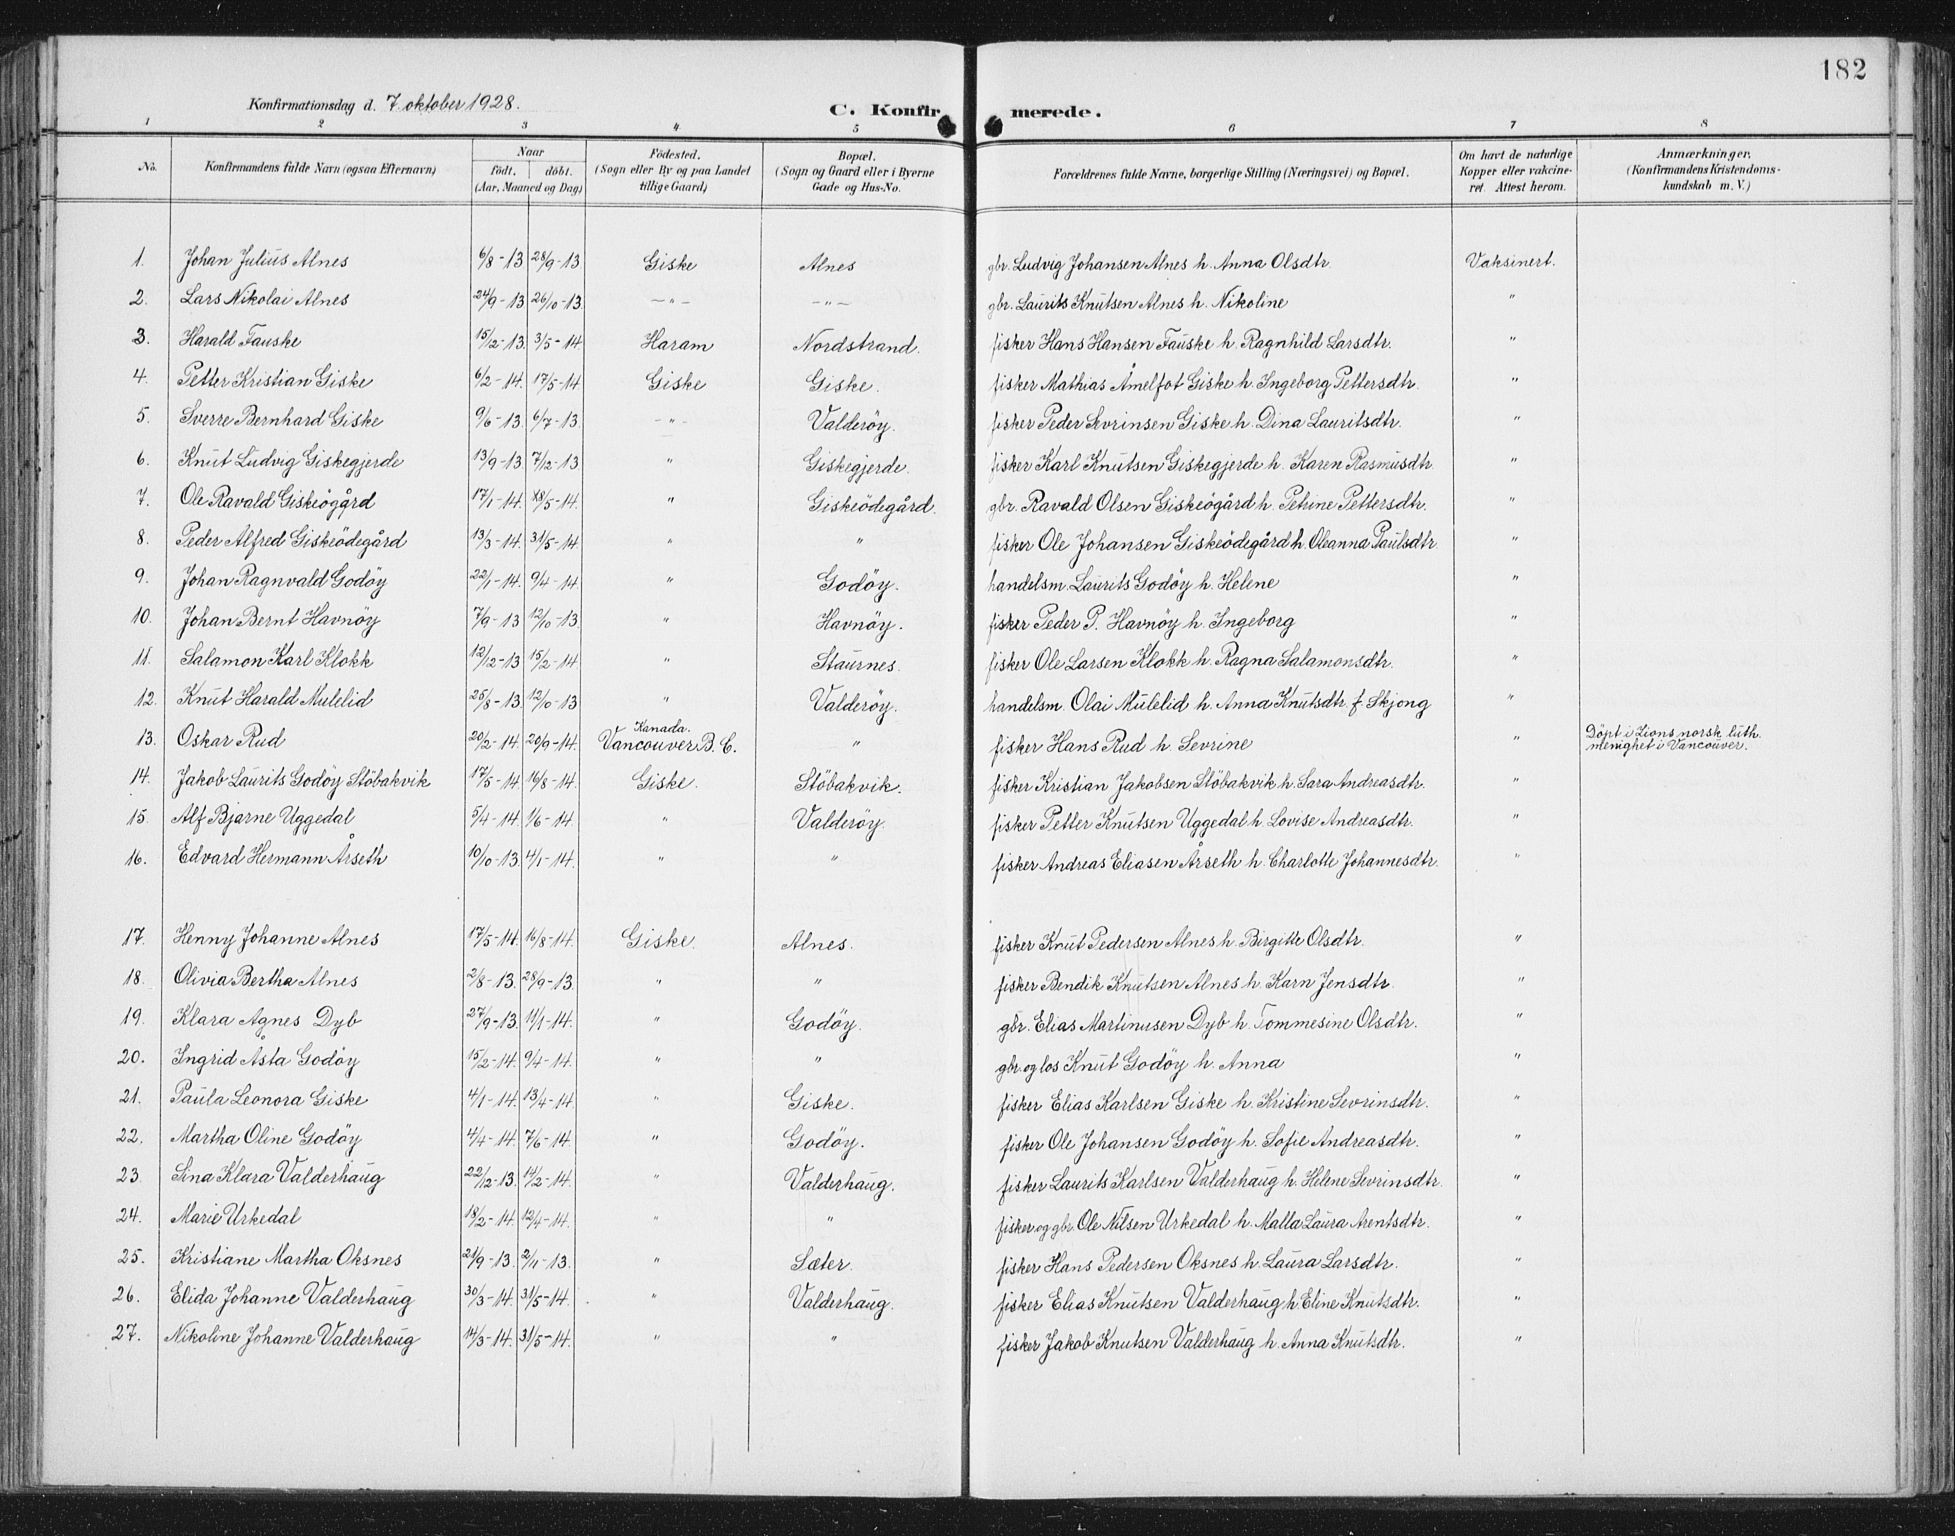 182
Konfirmationsdag d. 7 oktober 1928.
C. Konfirmerede.
1 2 3 4 5 6 7 8
No. Konfirmandens fulde Navn (ogsaa Efternavn) Naar født. døbt. (Aar, Maaned og Dag) Fødested. (Sogn eller By og paa Landet tillige Gaard) Bopæl. (Sogn og Gaard eller i Byerne Gade og Hus-No. Forældrenes fulde Navne, borgerlige Stilling (Næringsvei) og Bopæl. Om havt de naturlige Kopper eller vakcineret. Attest herom. Anmærkninger. (Konfirmandens Kristendomskundskab m. V.)
1. Johan Julius Alnes 6/8-13 28/9-13 Giske Alnes gbr. Ludvig Johansen Alnes h. Anna Olsdtr. Vaksinert.
2. Lars Nikolai Alnes 24/9-13 26/10-13 -"- -"- gbr. Laurits Knutsen Alnes h. Nikoline "
3. Harald Fauske 15/2-13. 3/5-14. Haram Nordstrand. fisker Hans Hansen Fauske h. Ragnhild Larsdtr. "
4. Petter Kristian Giske 6/2-14. 17/5-14 Giske Giske. fisker Mathias Åmelfot Giske h. Ingeborg Pettersdtr. "
5. Sverre Bernhard Giske 9/6-13. 6/7-13. -"- Valderöy. fisker Peder Sevrinsen Giske h. Dina Lauritsdtr. "
6. Knut Ludvig Giskegjerde 13/9-13 7/12-13 " Giskegjerde. fisker Karl Knutsen Giskegjerde h. Karen Rasmusdtr. "
7. Ole Ravald Giskeögård 17/1-14. 18/5-14. " Giskeödegård. gbr. Ravald Olsen Giskeögård h. Petrine Pettersdtr. "
8. Peder Alfred Giskeödegård 13/3-14. 31/5-14 " " fisker Ole Johansen Giskeödegård h. Oleanna Paulsdtr. "
9. Johan Ragnvald Godöy 22/1-14. 9/4-14. " Godöy. handelsm. Laurits Godöy h. Helene "
10. Johan Bernt Havnöy 7/9-13 12/10-13. " Havnöy. fisker Peder P. Havnöy h. Ingeborg "
11. Salamon Karl Klokk 12/12-13 15/2-14. " Staurnes. fisker Ole Larsen Klokk h. Ragna Salamonsdtr. "
12. Knut Harald Mulelid 25/8-13. 12/10-13 " Valderöy. handelsm. Olai Mulelid h. Anna Knutsdtr. f. Skjong "
13. Oskar Rud 20/2-14. 20/9-14. Kanada. Vancouver B.C. " fisker Hans Rud h. Sevrine " Döpt i Zions norsk luth. menighet i Vancouver.
14. Jakob Laurits Godöy Stöbakvik 17/5-14. 16/8-14. Giske. Stöbakvik. fisker Kristian Jakobsen Stöbakvik h. Sara Andreasdtr. "
15. Alf Bjarne Uggedal 5/4-14. 1/6-14 " Valderöy. fisker Petter Knutsen Uggedal h. Lovise Andreasdtr. "
16. Edvard Hermann Årseth 10/10-13. 4/1-14. " " fisker Andreas Eliasen Årseth h. Charlotte Johannesdtr. "
17. Henny Johanne Alnes 17/5-14. 16/8-14. Giske. Alnes. fisker Knut Pedersen Alnes h. Birgitte Olsdtr. "
18. Olivia Bertha Alnes 2/8-13. 28/9-13. " " fisker Bendik Knutsen Alnes h. Karn Jensdtr. "
19. Klara Agnes Dyb 27/9-13. 11/1-14. " Godöy. gbr. Elias Martinusen Dyb h. Tommesine Olsdtr. "
20. Ingrid Åsta Godöy 15/2-14. 9/4-14. " " gbr. og los Knut Godöy h. Anna "
21. Paula Leonora Giske 4/1-14. 13/4-14. " Giske. fisker Elias Karlsen Giske h. Kristine Sevrinsdtr. "
22. Martha Oline Godöy 4/4-14. 7/6-14. " Godöy. fisker Ole Johansen Godöy h. Sofie Andreasdtr. "
23. Sina Klara Valderhaug 22/12-13. 14/2-14. " Valderhaug. fisker Laurits Karlsen Valderhaug h. Helene Sevrinsdtr. "
24. Marie Urkedal 18/2-14. 12/4-14. " " fisker og gbr. Ole Nilsen Urkedal h. Malla Laura Arentsdtr. "
25. Kristiane Martha Oksnes 21/9-13. 2/11-13. " Sæter. fisker Hans Pedersen Oksnes h. Laura Larsdtr. "
26. Elida Johanne Valderhaug 30/3-14. 31/5-14. " Valderhaug. fisker Elias Knutsen Valderhaug h. Eline Knutsdtr. "
27. Nikoline Johanne Valderhaug 14/3-14. 31/5-14. " " fisker Jakob Knutsen Valderhaug h. Anna Knutsdtr. "